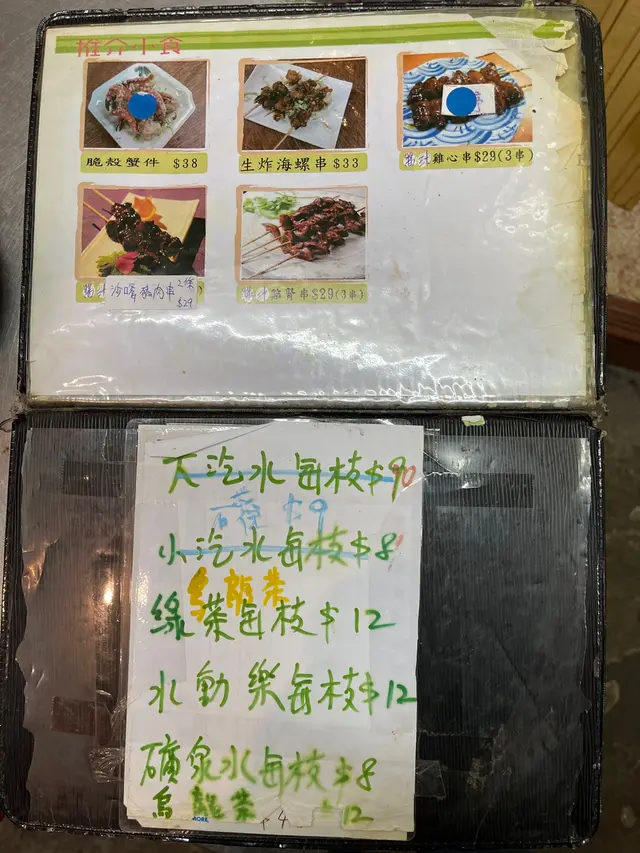 推介小食
脆殼蟹件 $38
生炸海螺串 $33
醬汁雞心串$29(3串)
醬汁沙嗲豬肉串 2條 $29
醬汁雞腎串$29(3串)
大汽水每枝$90
$9
小汽水每枝$8
烏龍茶
綠茶每枝$12
水動樂每枝$12
礦泉水每枝$8
烏龍茶 12